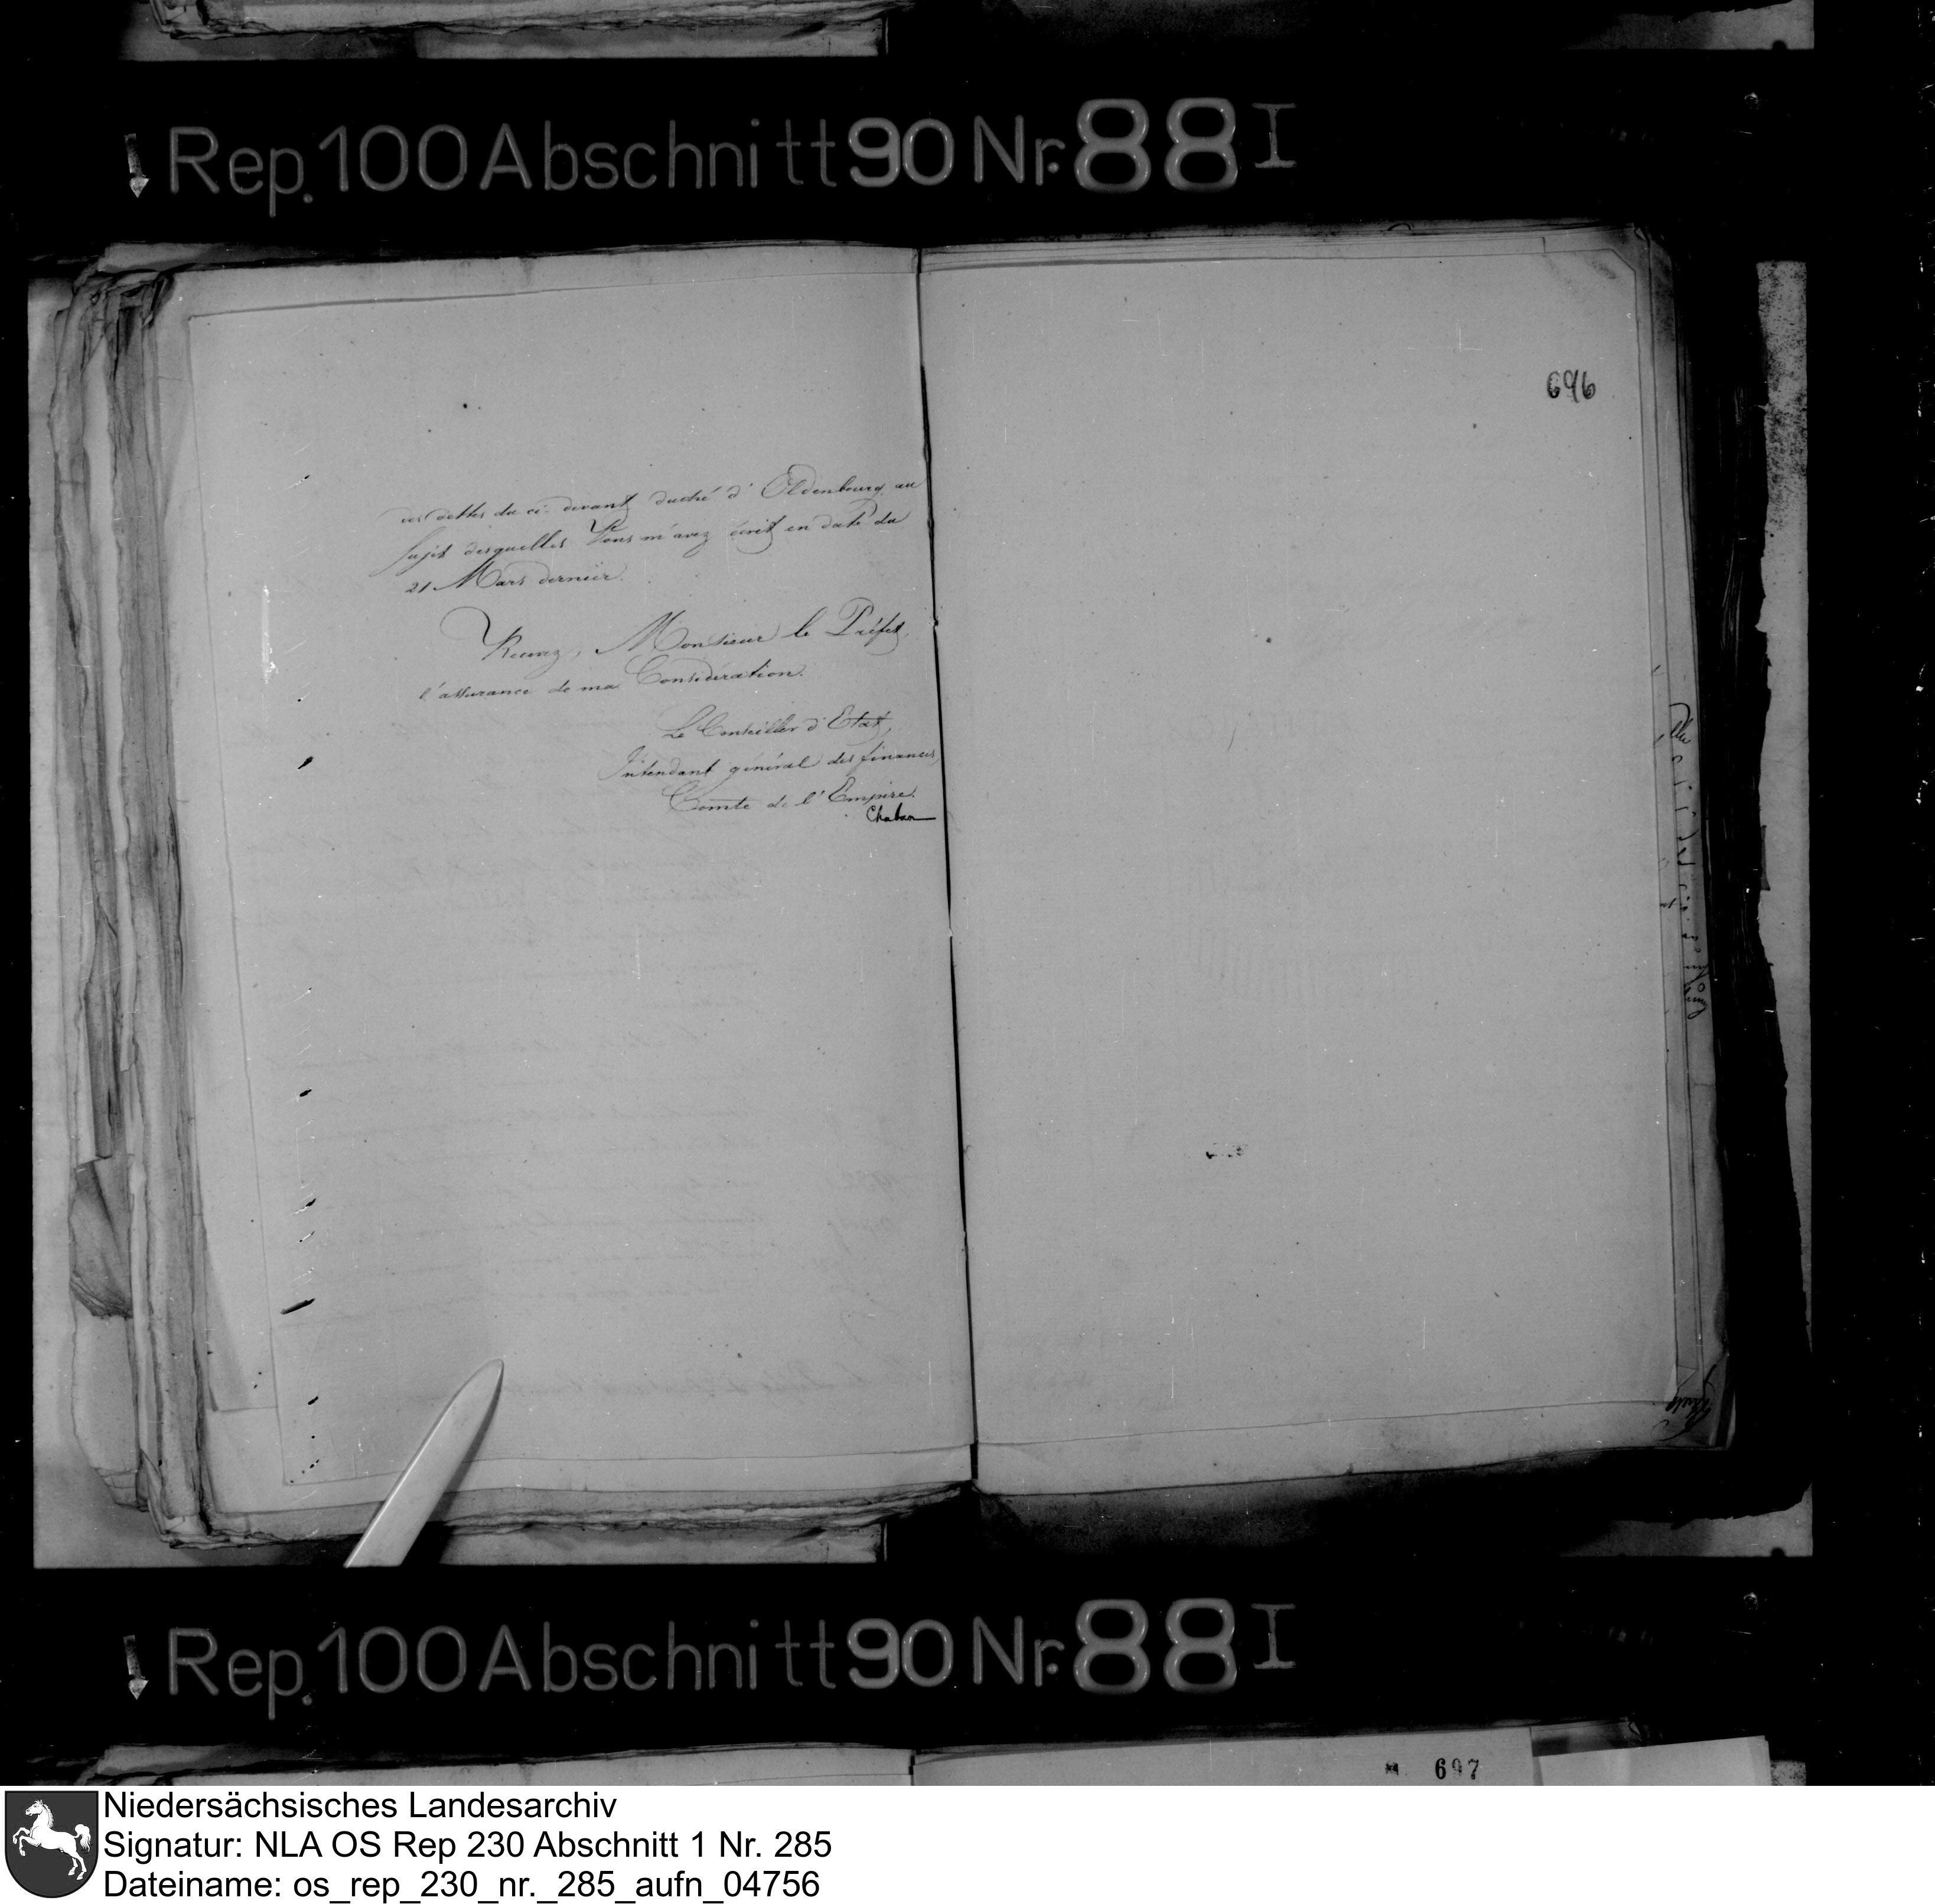 Rep. 100 Abschnitt 90 Nr. 88 I
696
des dettes du ci-devant duché d'Oldenbourg, au
sujet desquelles Vous m'avez écrit en date du
21 Mars dernier.
Recevez, Monsieur le Préfet,
l'assurance de ma Considération.
Le Conseiller d'Etat,
Intendant général des finances,
Comte de l'Empire.
Chaban
Rep. 100 Abschnitt 90 Nr. 88 I
697
Niedersächsisches Landesarchiv
Signatur: NLA OS Rep 230 Abschnitt 1 Nr. 285
Dateiname: os_rep_230_nr._285_aufn_04756